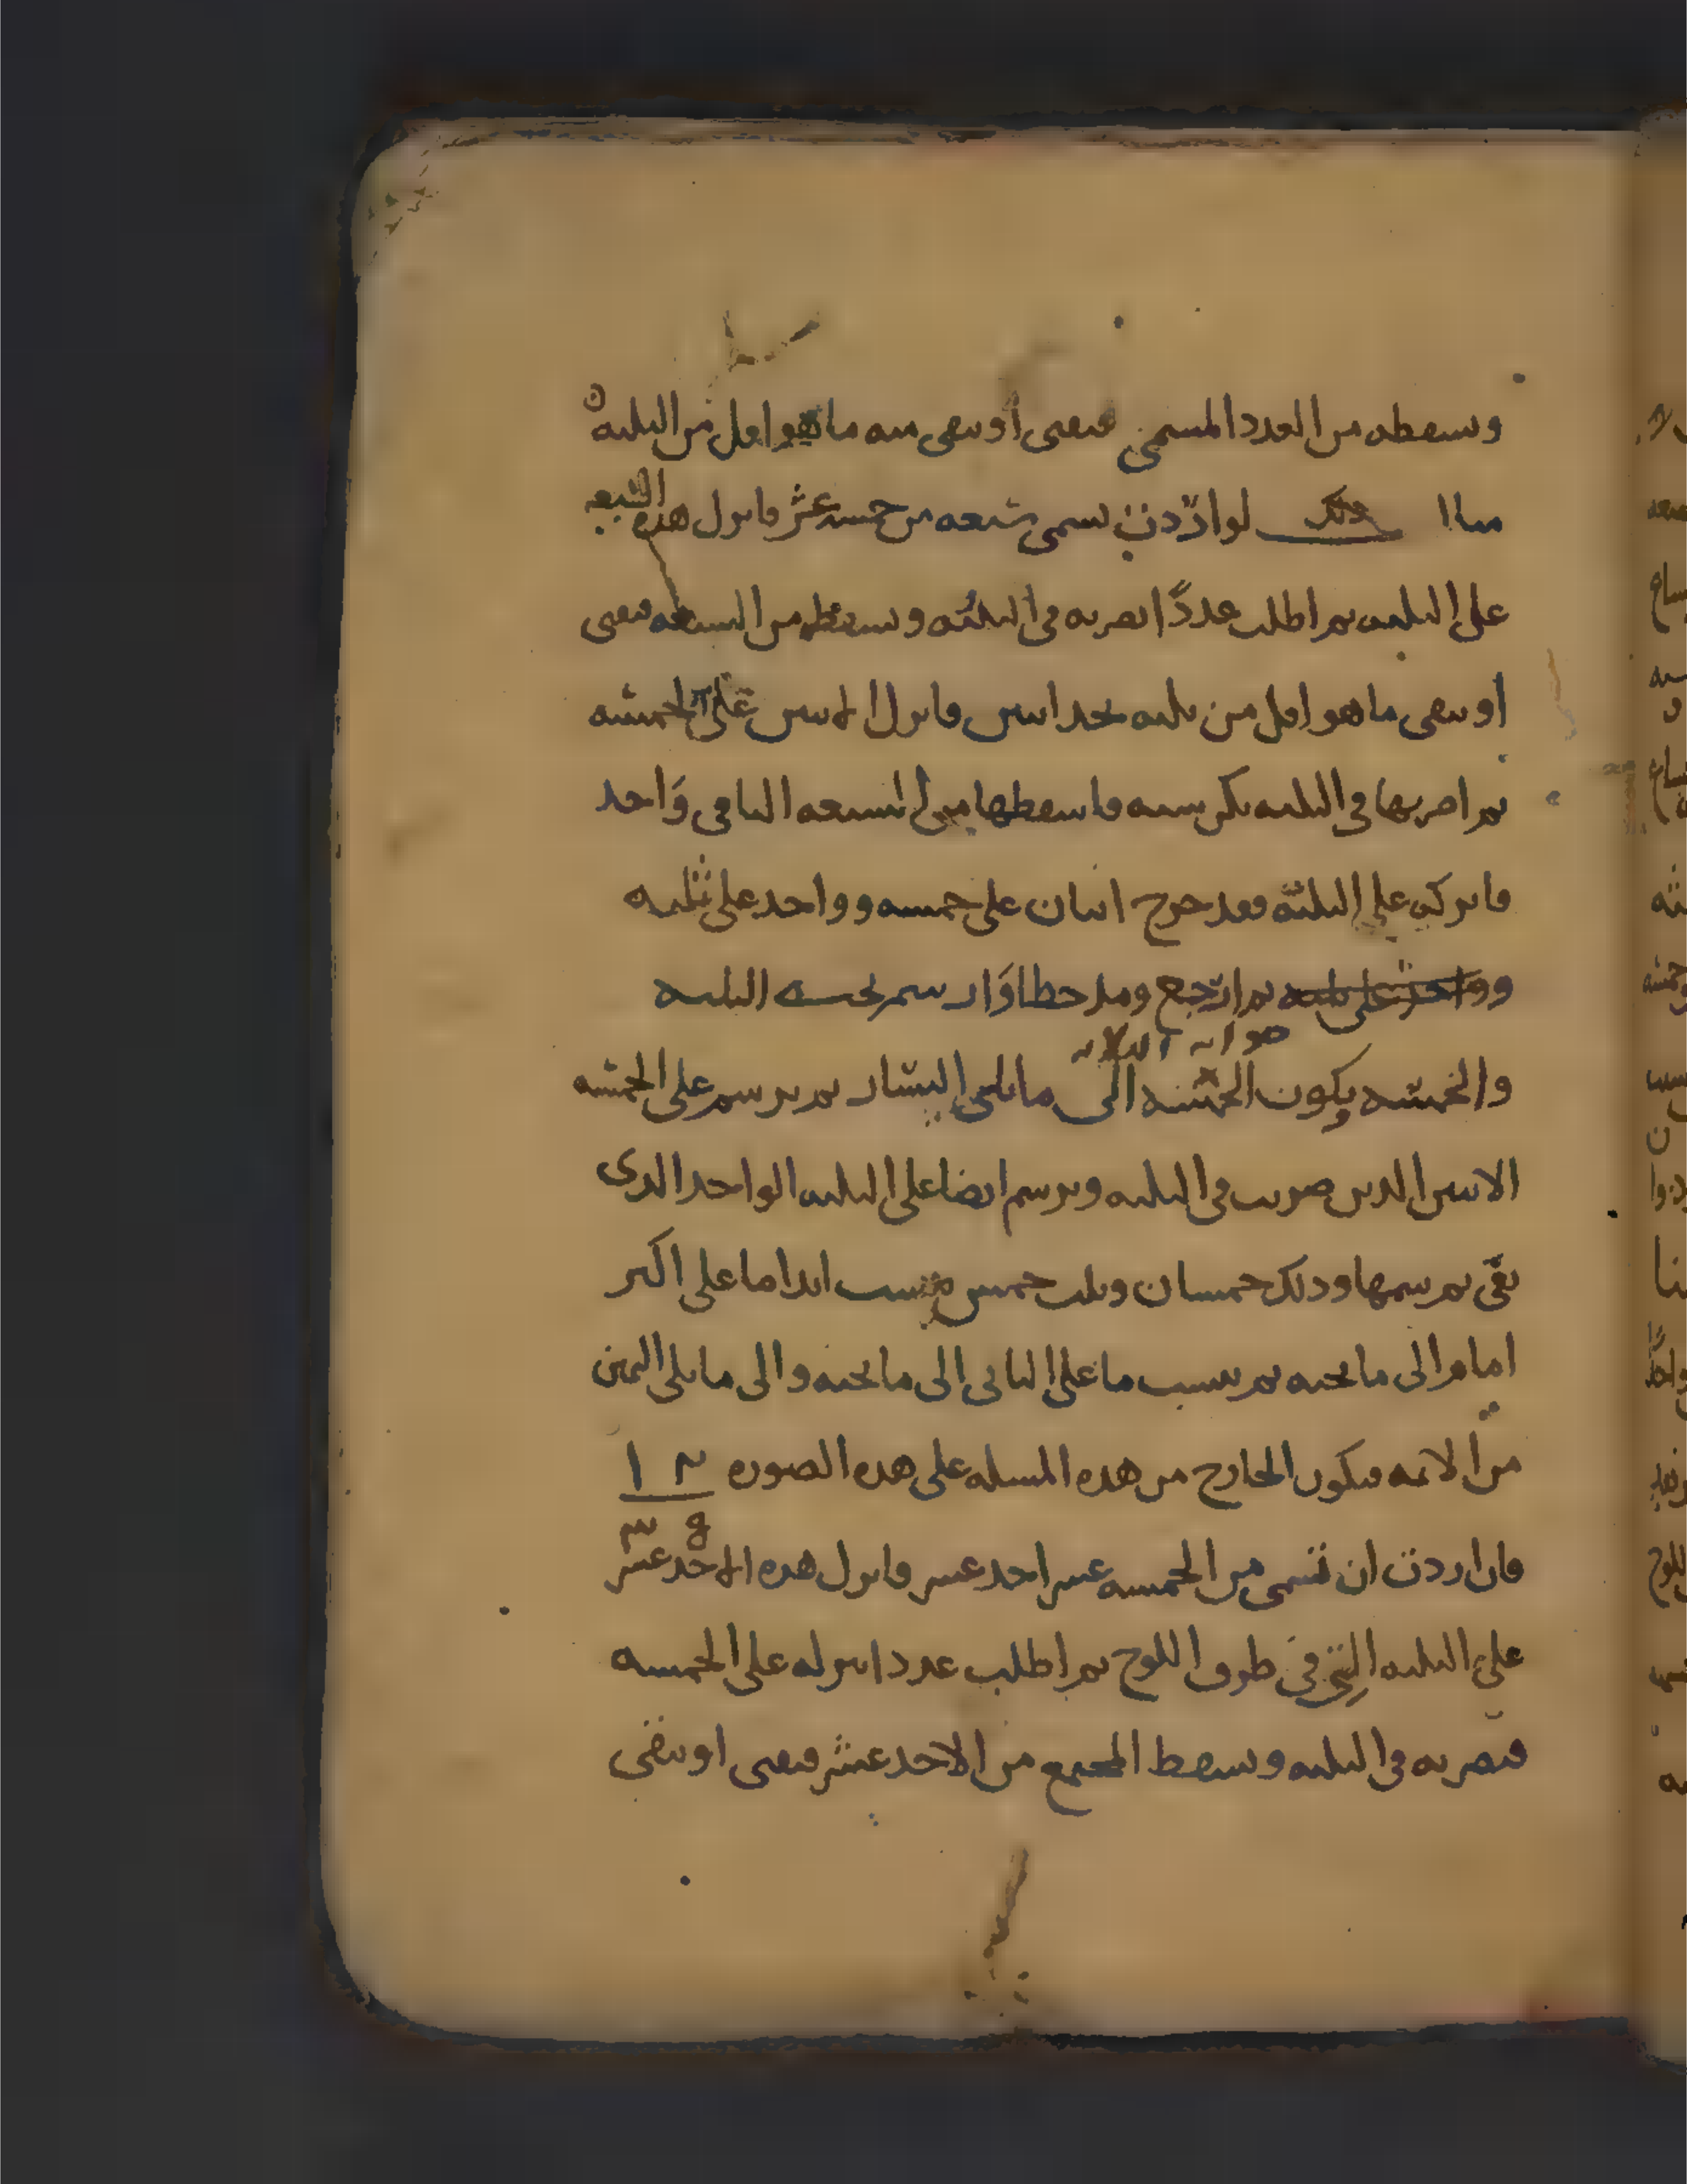 وتسقطه من العدد المسمى فيفنى أو يبقى منه ما هو اقل من الثلثه
مثال ذلك لو اردت تسمى سبعه من خمسه عشر فانزل هذه السبعه
على الثلثه ثم اطلب عددًا تضربه فى الثلثه وتسقطه من السبعه فيفنى
او يبقى ما هو اقل من ثلثه تجد اثنين فانزل الاثنين على الخمسه
ثم اضربها فى الثلثه تكن سته فاسقطها من السبعه الباقى وَاحد
فاتركه على الثلثه فقد خرج اثنان على خمسه وواحد على ثلثه
ثم ارجع ومد خطا وَارسم تحته الثلثه
والخمسه ويكون الخمسه الى مايلى اليسار ثم ترسم على الخمسه
صوابه الثلاثه
الاثنين الذين ضربت فى الثلثه وترسم ايضا على الثلثه الواحد الذى
بقى ثم سمها وذلك خمسان وثلث خمس تنسب ابدا ما على اكبر
امام الى ما تحته ثم تنسب ما على الثانى الى ما تحته والى مايلى اليمين
من الائمه فيكون الخارج من هذه المسله على هذه الصوره ٢ ١
٥ ٣
فان اردت ان تسمى من الخمسه عشر احد عشر فانزل هذه الاحد عشر
على الثلثه التى فى طرف اللوح ثم اطلب عددا تنزله على الخمسه
فتضربه فى الثلثه وتسقط المجتمع من الاحد عشر فيفنى او يبقى